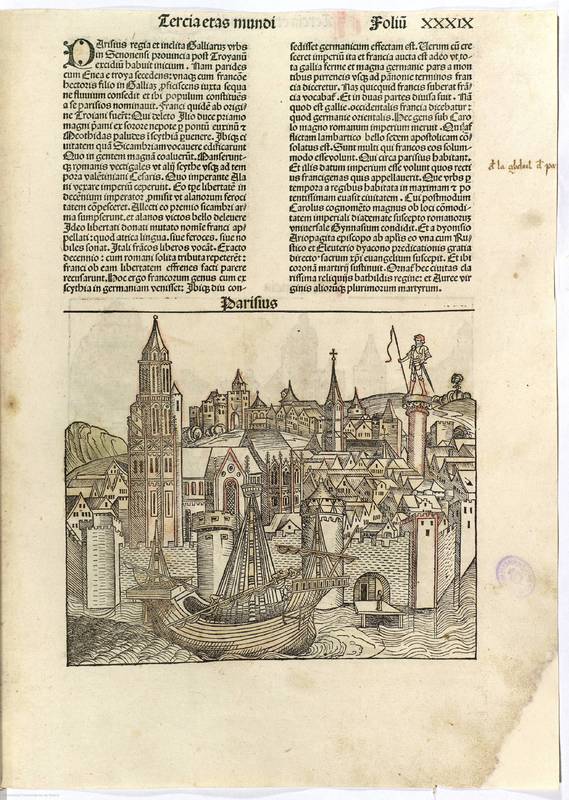 Tercia etas mundi
Foliũ XXXIX
PArisius regia et inclita Galliarũ vrbs
in Senonensi prouincia post Troyanũ
excidiũ habuit initium. Nam parides
cum Enea e troya secedens: vnaqȝ cum francõe
hectoris filio in Gallias ꝓficiscens iuxta sequa
ne fluuium consedit et ibi populum constituẽs
a se parisios nominauit. Franci quidẽ ab origi
ne Troiani fuerũt: Qui deleto Ilio duce priamo
magni p̃ami ex sorore nepote ꝑ pontũ euxinũ et
Meothidas paludes i scythiã ꝑuenere. Ibiqȝ ci
uitatem quã Sicambriam vocauere edificarunt
Quo in gentem magnã coaluerũt. Manserunt
qȝ romanis vectigales vt alij scythe vsqȝ ad tem
pora valẽtiniani Cesaris. Quo imperante Ala
ni vexare imperiũ ceperunt. Eo tꝑe libertatẽ in
decẽnium imperator ꝓmisit vt alanorum feroci
tatem cõpesceret. Allecti eo premio sicambri ar
ma sumpserunt, et alanos victos bello deleuere
Ideo libertati donati mutato nomĩe franci ap̃
pellati: quod attica lingua, siue feroces, siue no
biles sonat. Itali frãcos liberos vocãt. Exacto
decennio: cum romani solita tributa repeterẽt:
franci ob eam libertatem effrenes facti parere
recusarunt. Hoc ergo francorum genus cum ex
scythia in germaniam venisset: Ibiqȝ diu con-
sedisset germanicum effectam est. Uerum cũ cre
sceret imperiũ ita et francia aucta est adeo vt to
ta gallia ferme et magna germanie pars a mon
tibus pirreneis vsqȝ ad pãnonie terminos fran
cia diceretur. Nam quicquid francis suberat frã
cia vocabať. Et in duas partes diuisa fuit. Nã
quod est gallie. occidentalis francia dicebatur:
quod germanie orientalis. Hec gens sub Caro
lo magno romanum imperium meruit. Qui af
flictam lambartico bello sedem apostolicam cõ
solatus est. Sunt multi qui francos eos solum-
modo esse volunt. Qui circa parisius habitant.
Et illis datum imperium esse volunt quos recti
us francigenas quis appellauerit. Que vrbs ꝑ
tempora a regibus habitata in maximam et po
tentissimam euasit ciuitatem. Cui postmodum
Carolus cognomẽto magnus ob loci cõmodi-
tatem imperiali diademate suscepto romanorũ
vniuersale Gymnasium condidit. Et a dyonisio
Ariopagita episcopo ab aplis eo vna cum Ru
stico et Eleuterio dyacono predicationis gratia
directo: sacrum xp̃i euangelium suscepit. Et ibi
coronã martirij sustinuit. Ornať hec ciuitas cla
rissima reliquijs bathildis regine: et Auree vir
ginis aliorũqȝ plurimorum martyrum.
Parisius